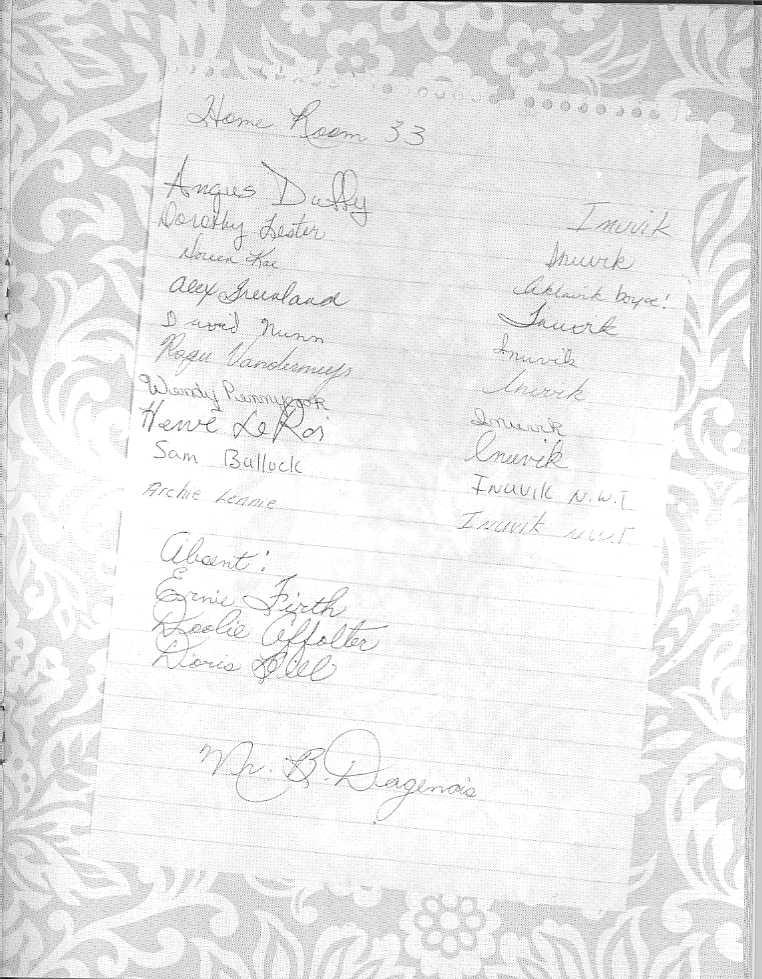 Home Room 33
Angus Duffy Inuvik
Dorothy Lester Inuvik
Noreen Kae Aklavik
Alex Greenland Inuvik
David Nunn Inuvik
Roger Vandermeys Inuvik
Wendy Pennycook Inuvik
Herve LeRoi Inuvik
Sam Bullock Inuvik N.W.T
Archie Lennie Inuvik NWT
Absent:
Ernie Firth
Affolter
Doris
Mr. B. Dagenais